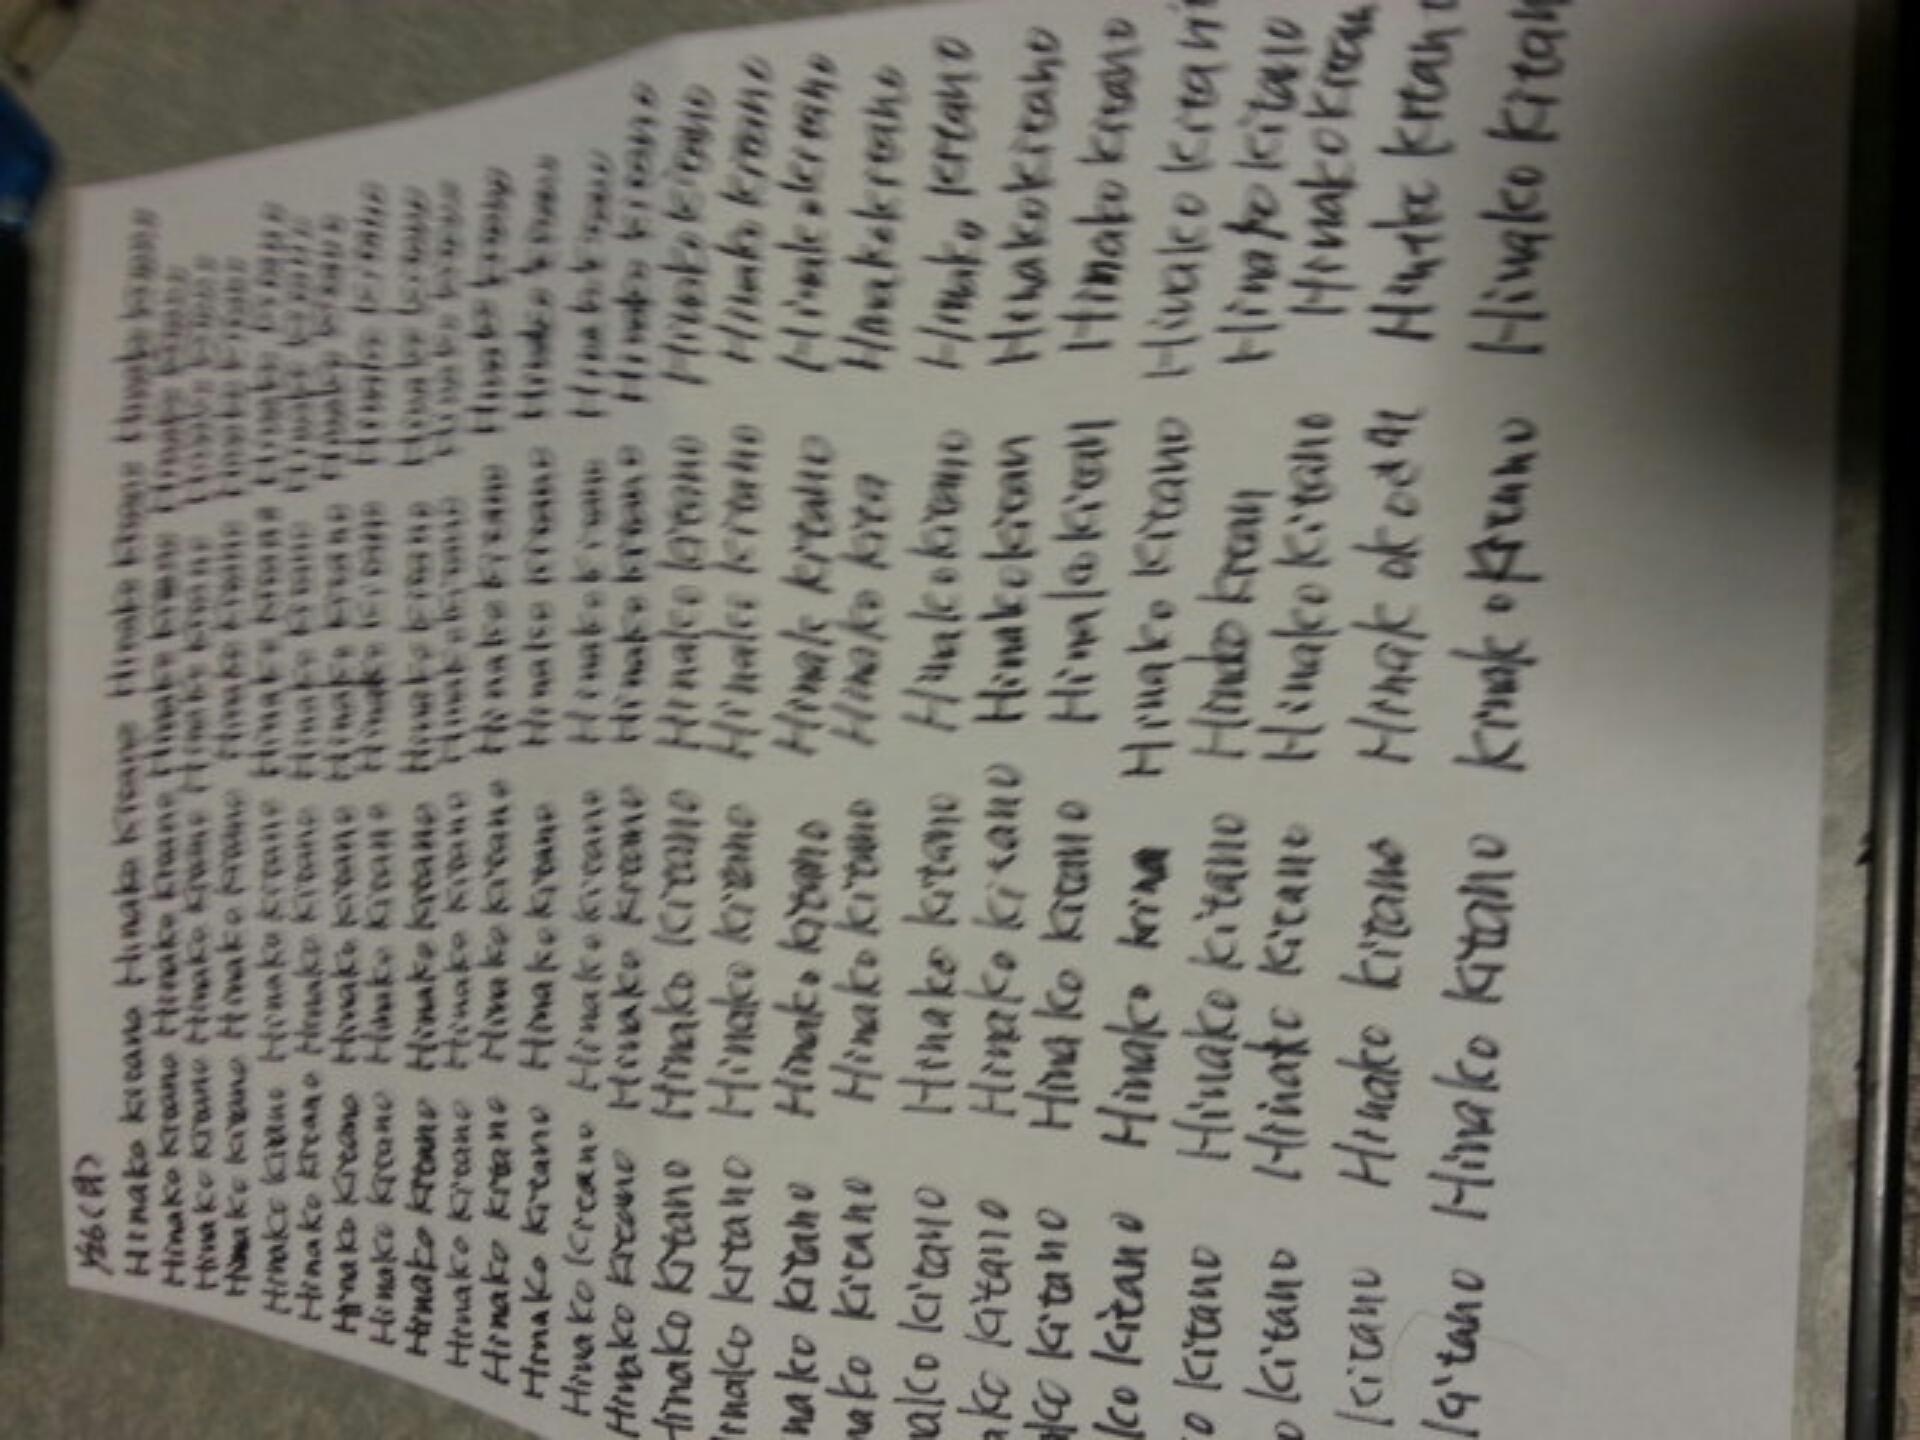 1/26(月)
Hinako Kitano Hinako Kitano Hinako Kitano Hinako Kitano
Hinako Kitano Hinako Kitano Hinako Kitano Hinako Kitano
Hinako Kitano Hinako Kitano Hinako Kitano Hinako Kitano
Hinako Kitano Hinako Kitano Hinako Kitano Hinako Kitano
Hinako Kitano Hinako Kitano Hinako Kitano Hinako Kitano
Hinako Kitano Hinako Kitano Hinako Kitano Hinako Kitano
Hinako Kitano Hinako Kitano Hinako Kitano Hinako Kitano
Hinako Kitano Hinako Kitano Hinako Kitano Hinako Kitano
Hinako Kitano Hinako Kitano Hinako Kitano Hinako Kitano
Hinako Kitano Hinako Kitano Hinako Kitano Hinako Kitano
Hinako Kitano Hinako Kitano Hinako Kitano Hinako Kitano
Hinako Kitano Hinako Kitano Hinako Kitano Hinako Kitano
Hinako Kitano Hinako Kitano Hinako Kitano Hinako Kitano
Hinako Kitano Hinako Kitano Hinako Kitano Hinako Kitano
Hinako Kitano Hinako Kitano Hinako Kitano Hinako Kitano
inako Kitano Hinako Kitano Hinako Kitano Hinako Kitano
nako Kitano Hinako Kitano Hinak Kitano Hinako Kitano
nako Kitano Hinako Kitano Hinako Kita Hinako Kitano
nako Kitano Hinako Kitano Hinako Kitano Hinako Kitano
ako Kitano Hinako Kitano Hinako Kitan Hinako Kitano
ako Kitano Hinako Kitano Hinako Kitan Hinako Kitano
ko Kitano Hinako Kina Hinako Kitano Hinako Kitan
o Kitano Hinako Kitano Hinako Kitan Hinako Kitano
o Kitano Hinako Kitano Hinako Kitano Hinako Kitan
Kitano Hinako Kitano Hinak
Kitano Hinako Kitano Kinako Kitano Hinako Kitan